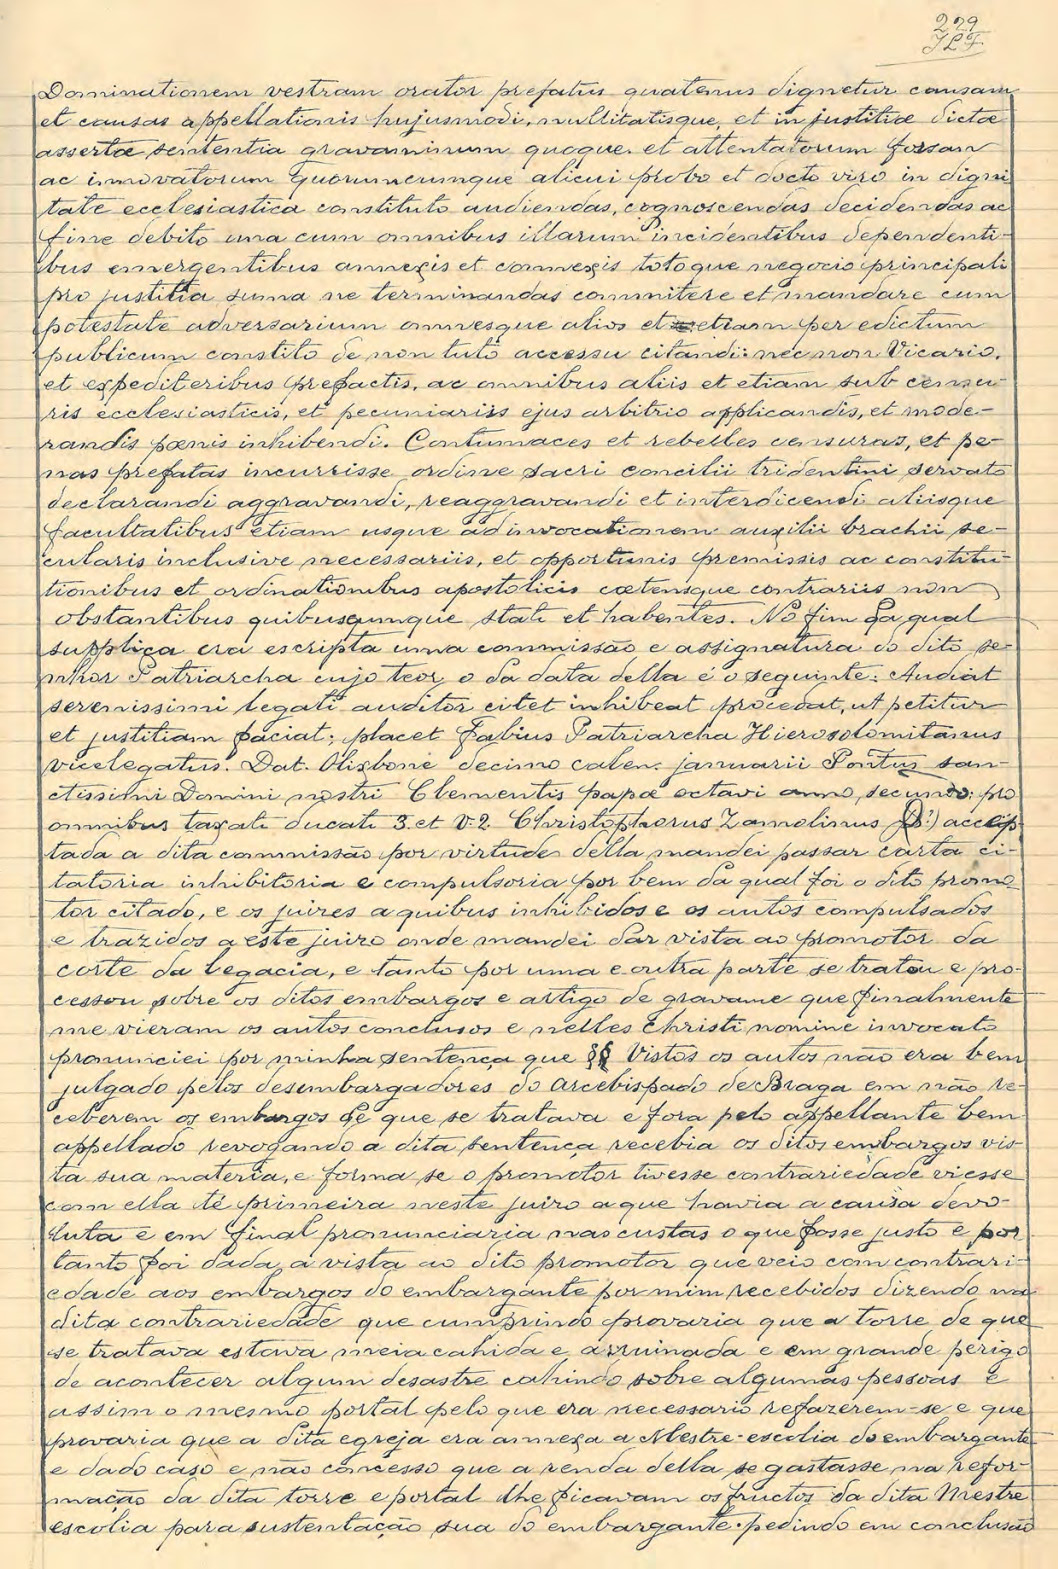 229
JLF
Dominationem vestram orator prefatus quatenus dignetur causam
et causas appellationis hujusmodi, nullitatisque, et injustitiæ dictæ
assertæ sententia gravaminum quoque. et attentatorum forsan
ac innovatorum quorumcumque alicui probo et docto viro in digni
tate ecclesiastica constituto audiendas, cognoscendas decidendas ac
fine debito una cum omnibus illarum incidentibus dependenti-
bus emergentibus annexis et connexis totoque negocio principali
pro justitia summa ne terminandas committere et mandare cum
potestate adversarium omnesque alios et etiam per edictum
publicum constito de non tuto accessu citandi: nec non Vicario,
et expeditoribus prefactis, ac omnibus aliis et etiam sub censu-
ris ecclesiasticis, et pecuniariis ejus arbitrio applicandis, et mode-
randis pœnis inhibendi. Contumaces et rebelles censuras, et pe-
nas prefatas incurrisse ordine sacri concilii tridentini servato
declarandi aggravandi, reaggravandi et interdicendi aliisque
facultatibus etiam usque ad invocationem auxilii brachii se-
cularis inclusive necessariis, et opportunis premissis ac constitu-
tionibus et ordinationibus apostolicis cœtensque contrariis non
obstantibus quibuscumque stati et habentes. No fim da qual
supplica era escripta uma commissão e assignatura do dito se-
nhor Patriarcha cujo teor, o da data della é o seguinte: Audiat
serenissimi legati auditor citet inhibeat procedat, ut petitur
et justitiam faciat; placet Fabius Patriarcha Hierosolomitanus
vicelegatus. Dat. Olixbone decimo calen: januarii Pontus san-
ctissimi Domini nostri Clementis papæ octavi anno, secundo: pro
omnibus taxati ducati 3. et V. 2. Christopherus Zamolinus accep
tada a dita commissão por virtude della mandei passar carta ci-
tatoria inhibitoria e compulsoria por bem da qual foi o dito promo-
tor citado, e os juizes a quibus inhibidos e os autos compulsados
e trazidos a este juizo onde mandei dar vista ao promotor da
corte da legacia, e tanto por uma e outra parte se tratou e pro-
cessou sobre os ditos embargos e artigo de gravame que finalmente
me vieram os autos conclusos e nelles Christi nomine invocato
pronunciei por minha sentença que §§ Vistos os autos não era bem
julgado pelos desembargadores do Arcebispado de Braga em não re-
ceberem os embargos de que se tratava e fora pelo appellante bem
appellado revogando a dita sentença recebia os ditos embargos vis-
ta sua materia, e forma, se o promotor tivesse contrariedade viesse
com ella té primeira neste juizo a que havia a causa devo-
luta e em final pronunciaria nas custas o que fosse justo e por
tanto foi dada a vista ao dito promotor que veio com contrari-
edade aos embargos do embargante por mim recebidos dizendo na
dita contrariedade que cumprindo provaria que a torre de que
se tratava estava meia cahida e arruinada e em grande perigo
de acontecer algum desastre cahindo sobre algumas pessoas e
assim o mesmo portal pelo que era necessario refazerem-se e que
provaria que a dita egreja era annexa a Mestre-escolia do embargante
e dado caso e não concesso que a renda della se gastasse na refor-
mação da dita torre e portal lhe ficavam os fructos da dita Mestre
escolia para sustentação sua do embargante pedindo em conclusão